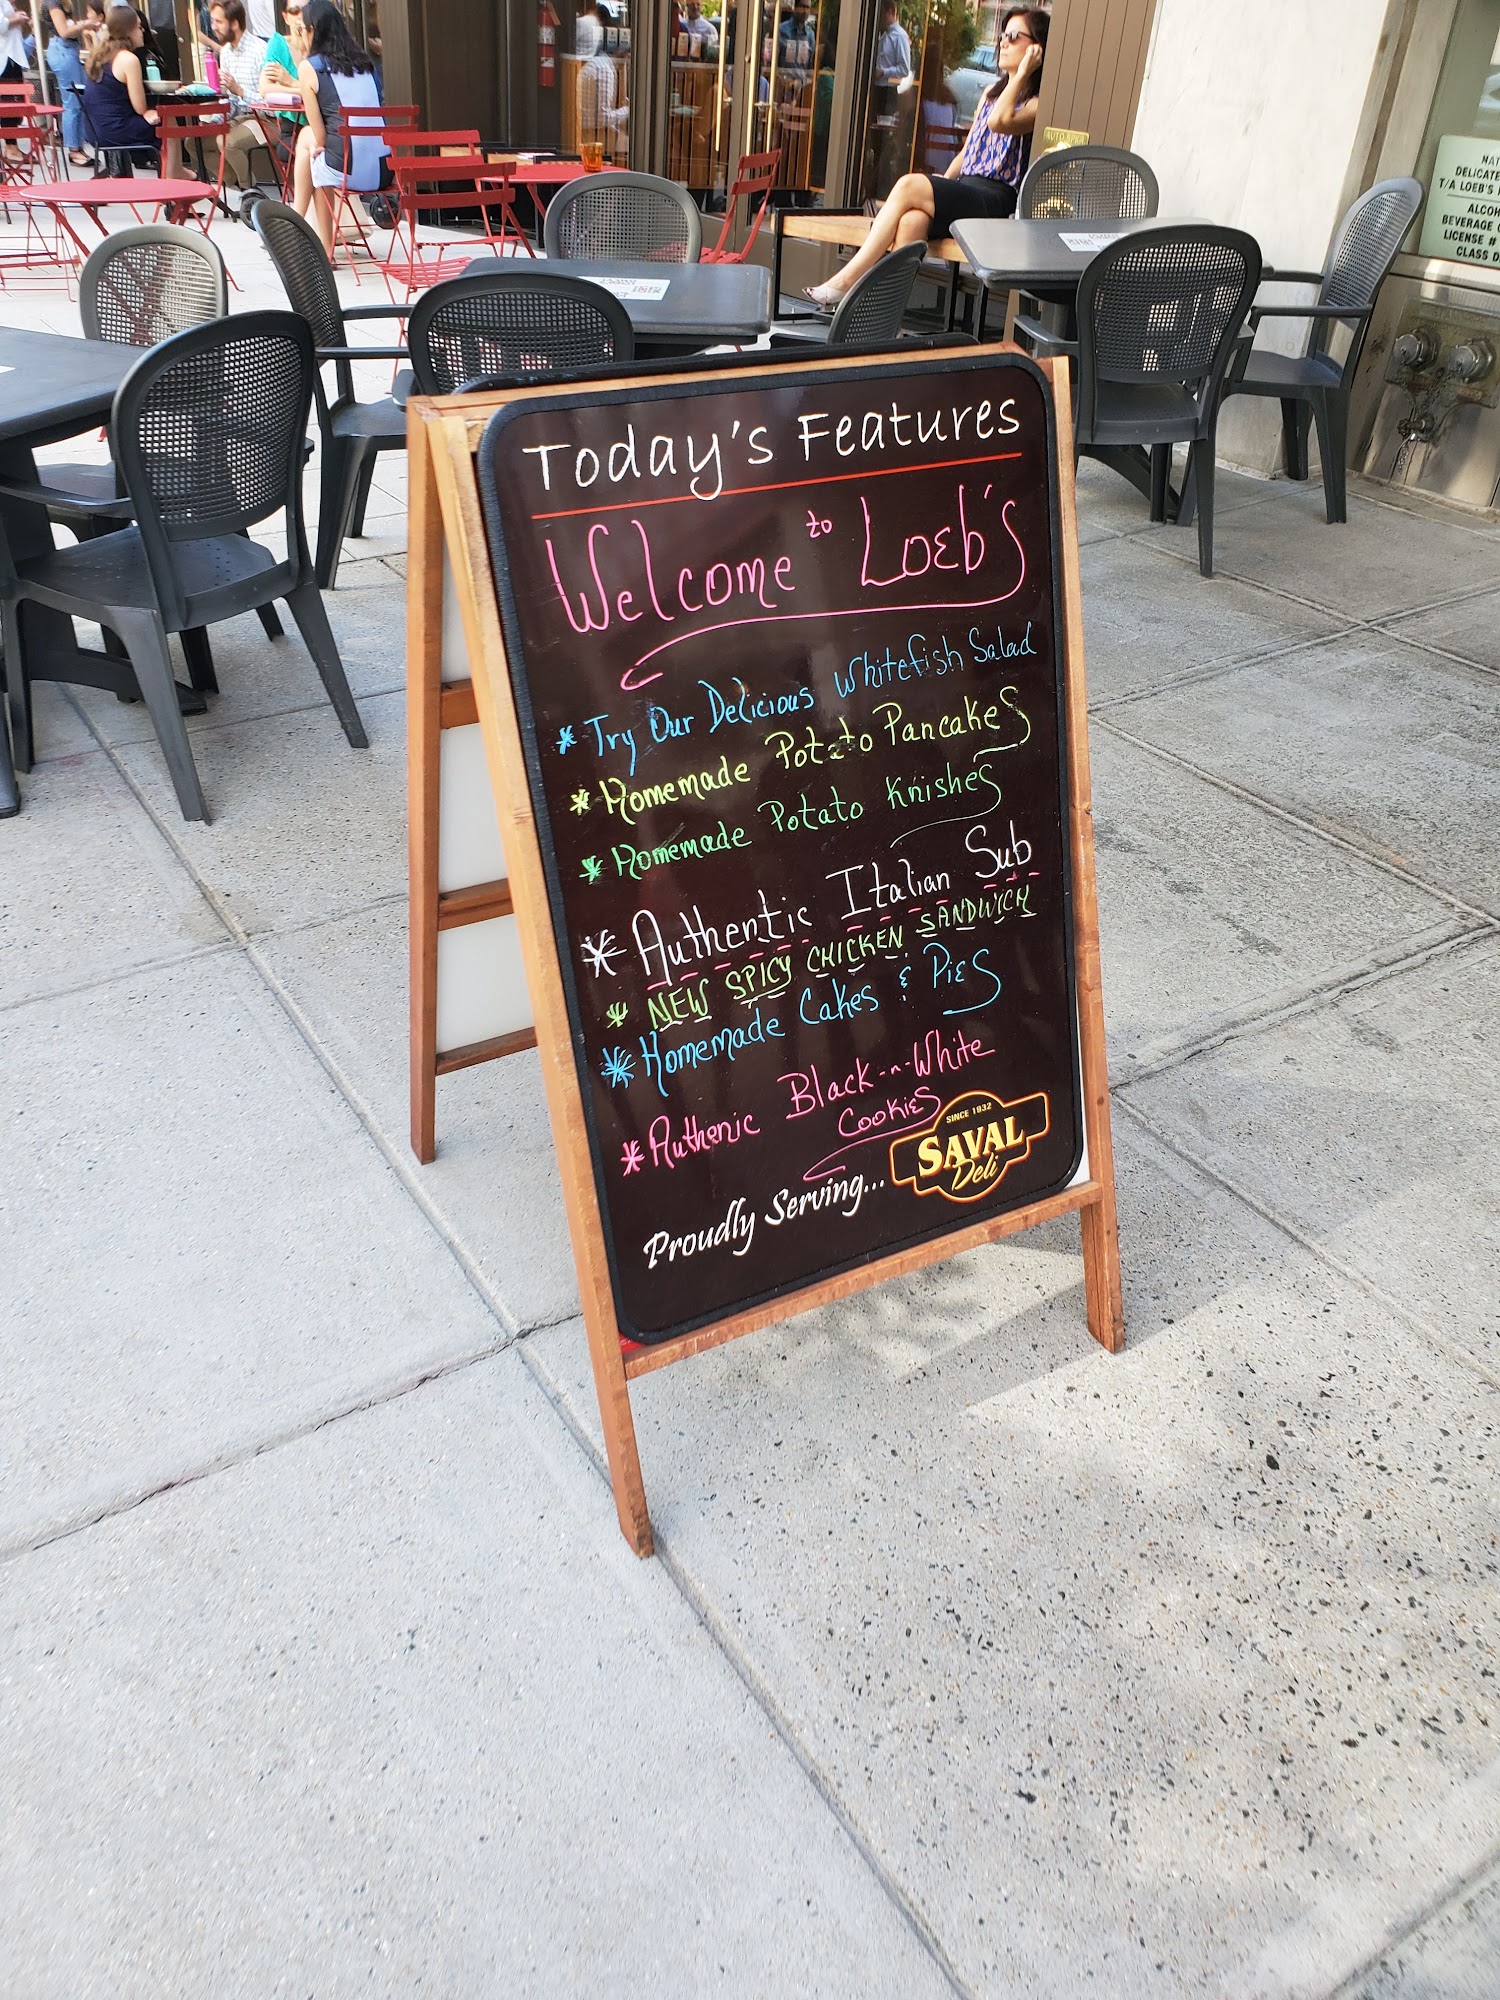 Today's Features
Welcome to Loeb's
* Try Our Delicious Whitefish Salad
* Homemade Potato Pancakes
* Homemade Potato Knishes
* Authentic Italian Sub
* NEW SPICY CHICKEN SANDWICH
* Homemade Cakes & Pies
* Authenic Black-n-White
Cookies
Proudly Serving...
SINCE 1932
SAVAL
Deli
NAT
DELICATE
T/A LOEB'S
ALCOH
BEVERAGE
LICENSE #
CLASS D